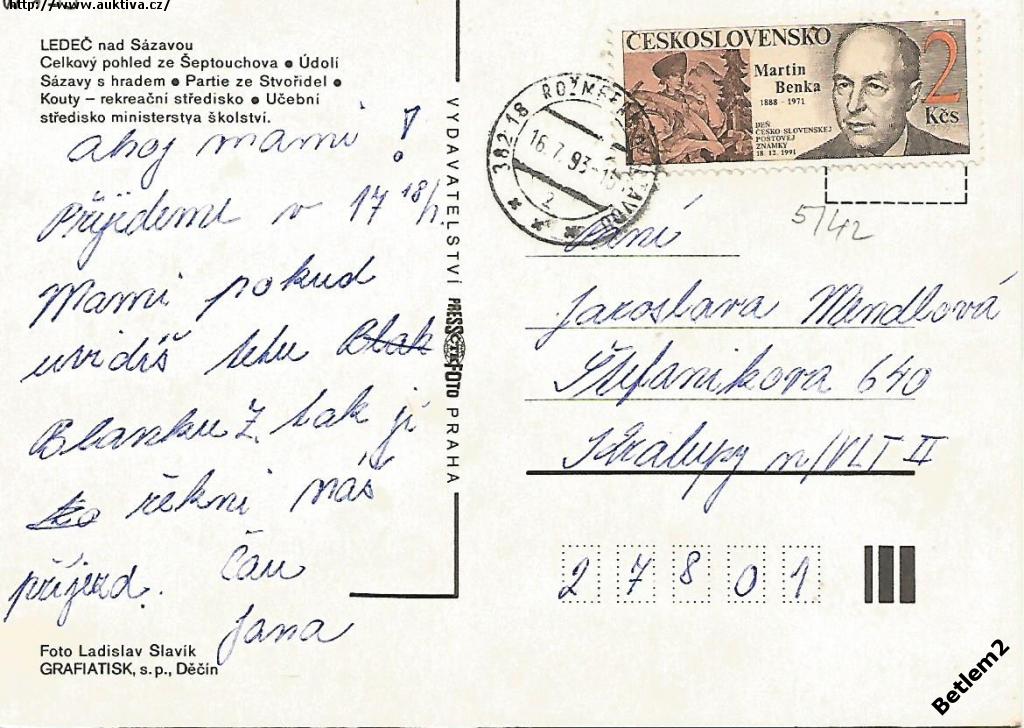 http://www.auktiva.cz/
LEDEČ nad Sázavou
Celkový pohled ze Šeptouchova ● Údolí
Sázavy s hradem ● Partie ze Stvořidel ●
Kouty – rekreační středisko ● Učební
středisko ministerstva školství.
ahoj mami!
Přijedeme v 17 18/7
Mami pokud
uvidíš tetu
Blanku Ž. tak jí
řekni náš
příjezd. Čau
Jana
Foto Ladislav Slavík
GRAFIATISK, s.p., Děčín
VYDAVATELSTVÍ PRESSFOTO PRAHA
382 18
16.7.93-15
2
ČESKOSLOVENSKO
Martin
Benka
1888 - 1971
DEŇ
ČESKO-SLOVENSKEJ
POŠTOVEJ
ZNÁMKY
18. 12. 1991
2
Kčs
5/42
Paní
Jaroslava Mendlová
Štefanikova 640
Kralupy n/VLT II
27801
Betlem2